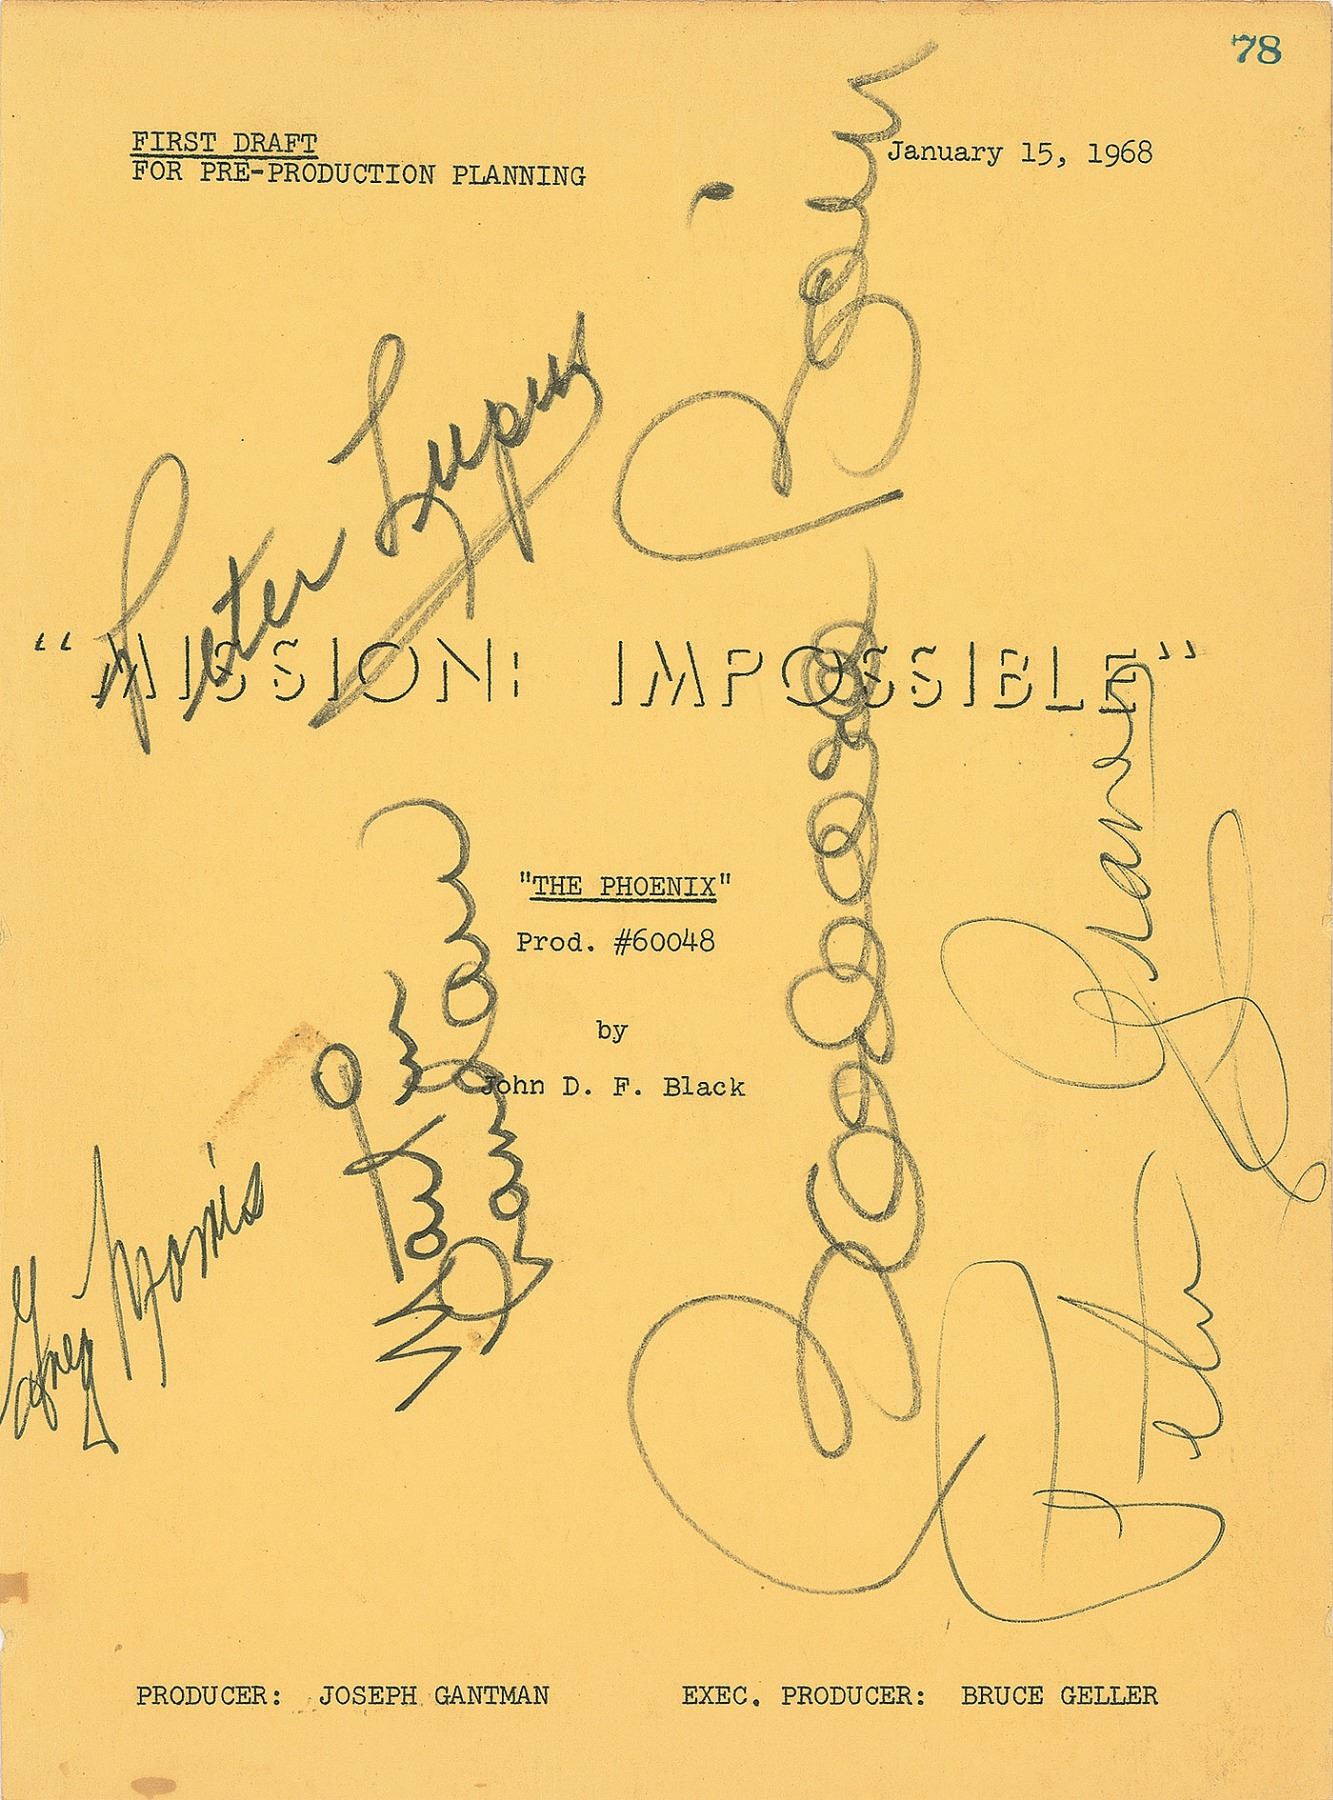 78
FIRST DRAFT
FOR PRE-PRODUCTION PLANNING
January 15, 1968
Peter Lupus
Barbara Bain
"MISSION: IMPOSSIBLE"
"THE PHOENIX"
Prod. #60048
by
John D. F. Black
Greg Morris
Martin Landau
Peter Graves
PRODUCER: JOSEPH GANTMAN
EXEC. PRODUCER: BRUCE GELLER